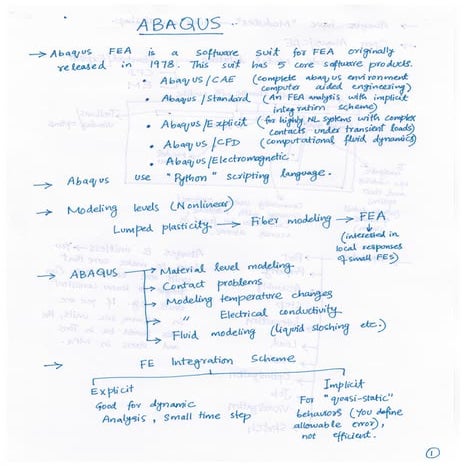 ABAQUS
→ Abaqus FEA is a software suit for FEA originally
released in 1978. This suit has 5 core software products.
• Abaqus/CAE (complete abaqus environment
computer aided engineering)
• Abaqus/Standard (An FEA analysis with implicit
integration scheme)
• Abaqus/Explicit (for highly NL systems with complex
contacts under transient loads)
• Abaqus/CFD (computational fluid dynamics)
• Abaqus/Electromagnetic.
→ Abaqus use "Python" scripting language.
→ Modeling levels (Nonlinear)
Lumped plasticity → Fiber modeling → FEA
(interested in
local responses
of small FES)
→ ABAQUS → Material level modeling.
→ Contact problems
→ Modeling temperature changes
→ " Electrical conductivity
→ Fluid modeling (liquid sloshing etc.)
→ FE Integration Scheme
Explicit
Good for dynamic
Analysis, small time step
Implicit
For "quasi-static"
behaviors (You define
allowable error),
not efficient.
1